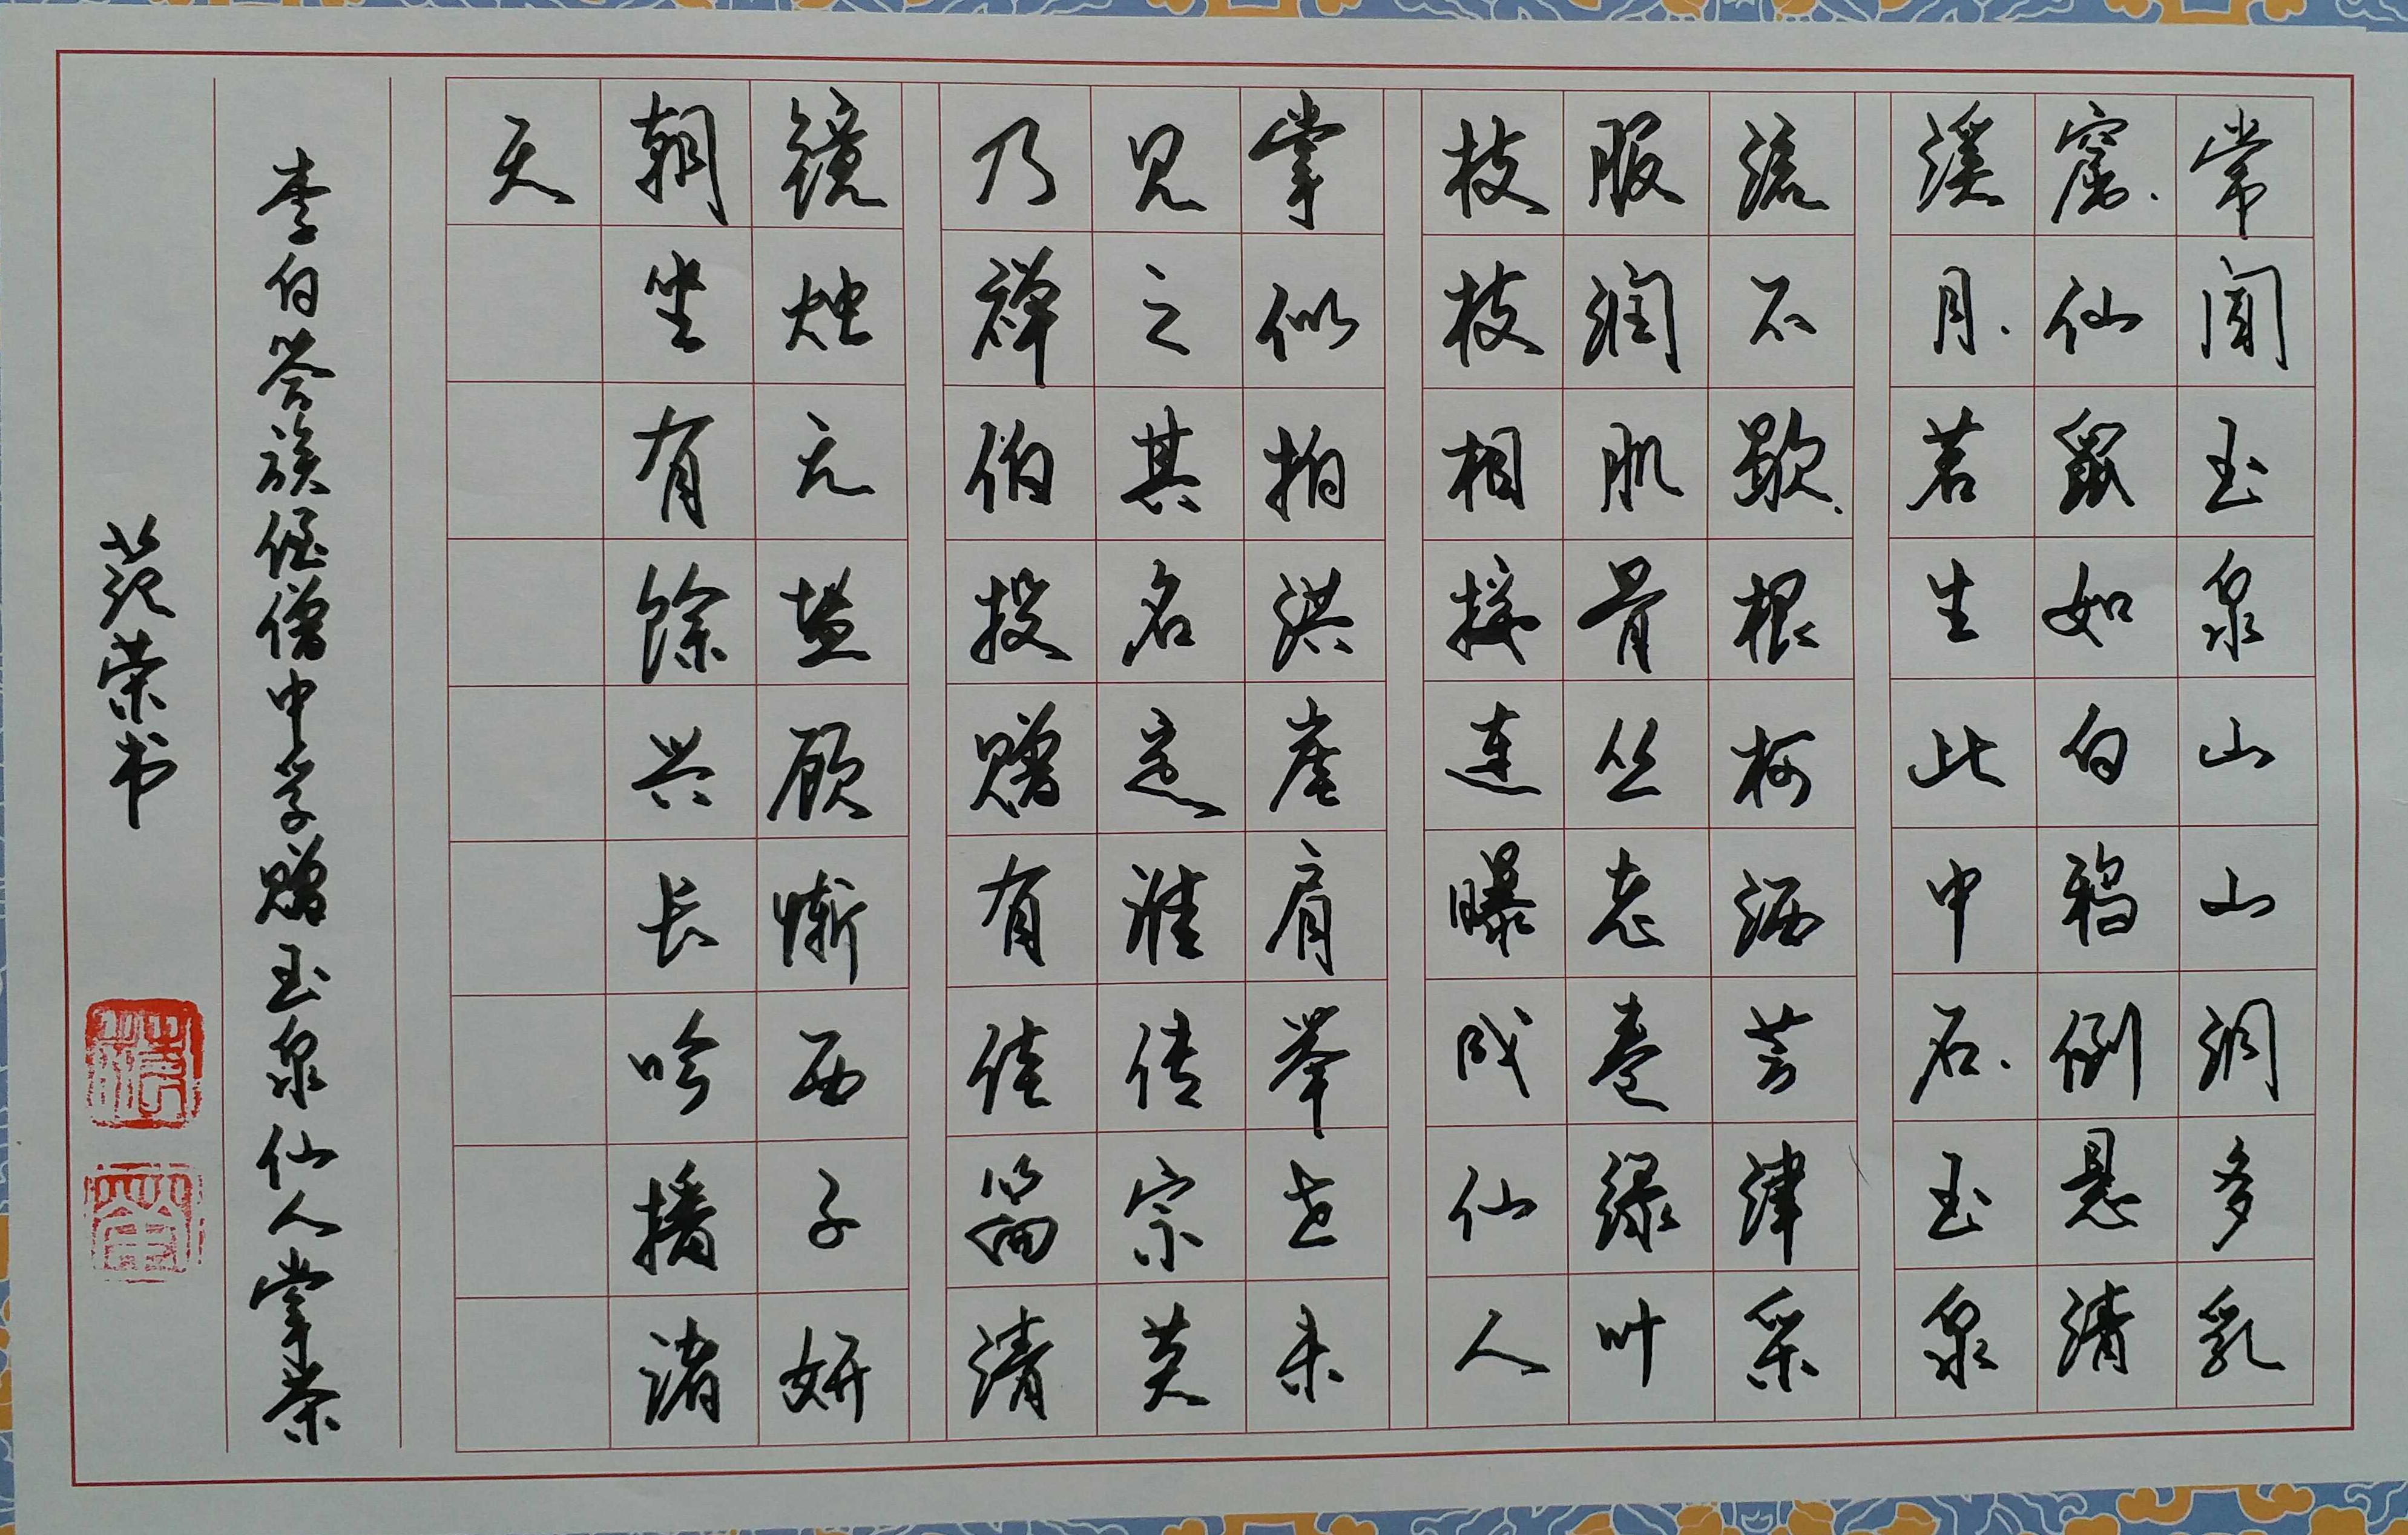 常闻玉泉山山洞多乳
窟仙鼠如白鸦倒悬清
溪月茗生此中石玉泉
流不歇根柯洒芳津采
服润肌骨丛老卷绿叶
枝枝相接连曝成仙人
掌似拍洪崖肩举世未
见之其名定谁传宗英
乃禅伯投赠有佳篇清
镜烛无盐顾惭西子妍
朝坐有馀兴长吟播诸
天
李白答族侄僧中孚赠玉泉仙人掌茶
范荣书